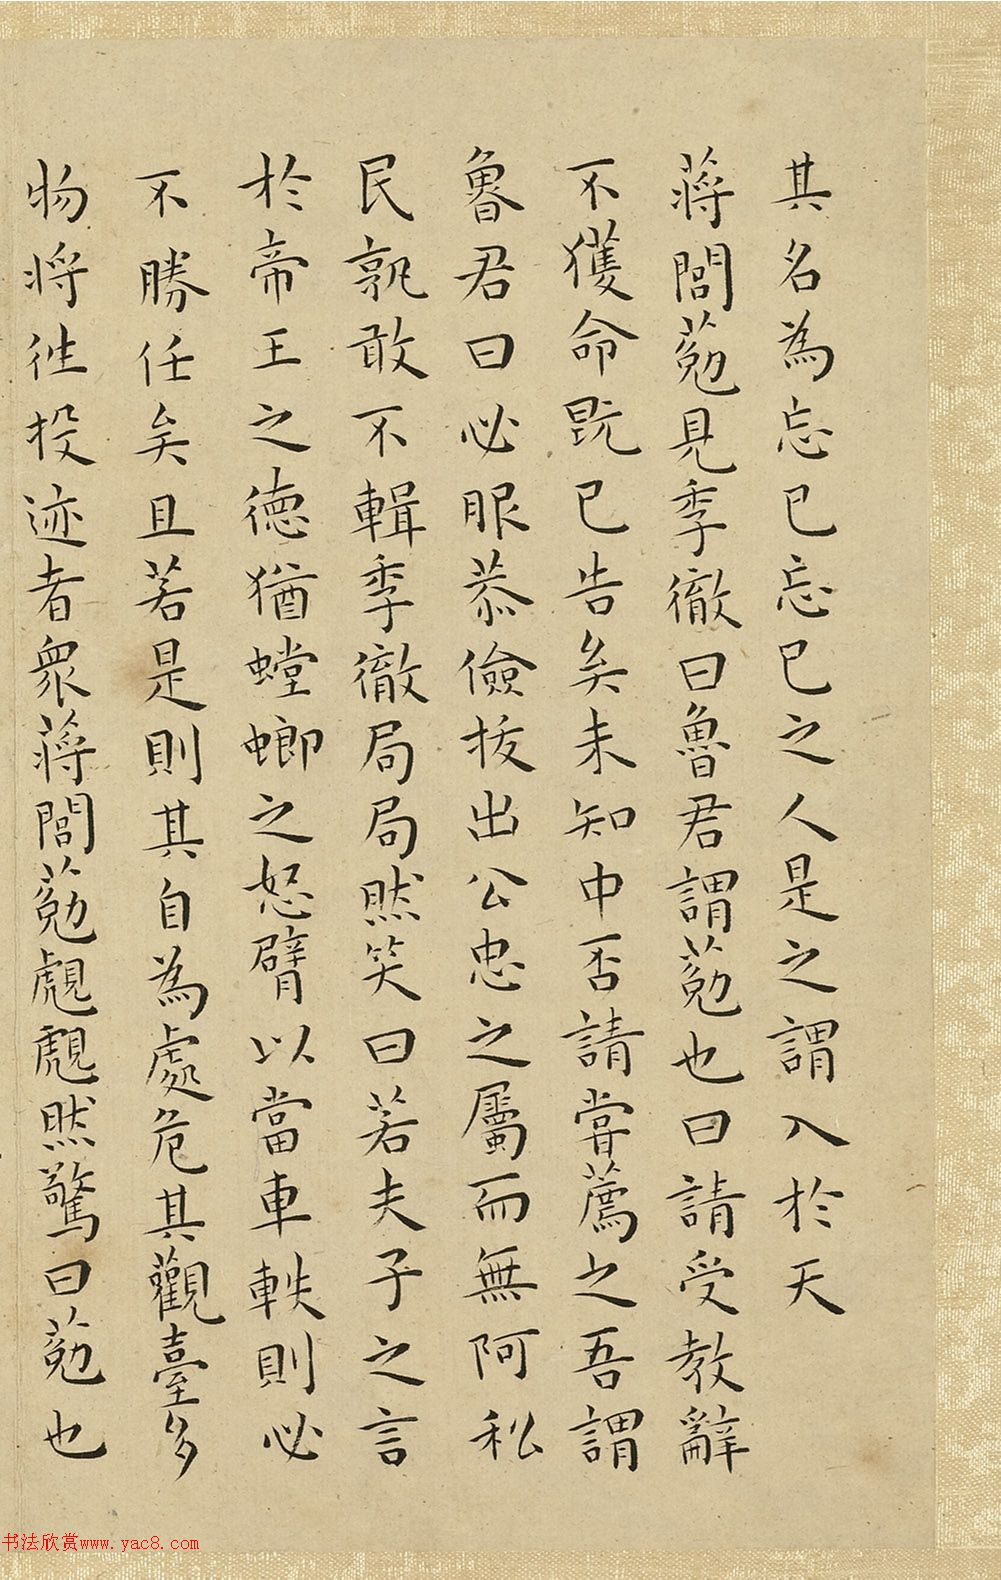 其名為忘已忘已之人是之謂入於天
蔣閭葂見季徹曰魯君謂葂也曰請受教辭
不獲命既已告矣未知中否請嘗薦之吾謂
魯君曰必服恭儉拔出公忠之屬而無阿私
民孰敢不輯季徹局局然笑曰若夫子之言
於帝王之德猶螳螂之怒臂以當車軼則必
不勝任矣且若是則其自為處危其觀臺多
物將往投迹者衆蔣閭葂覤覤然驚曰葂也
书法欣赏www.yac8.com